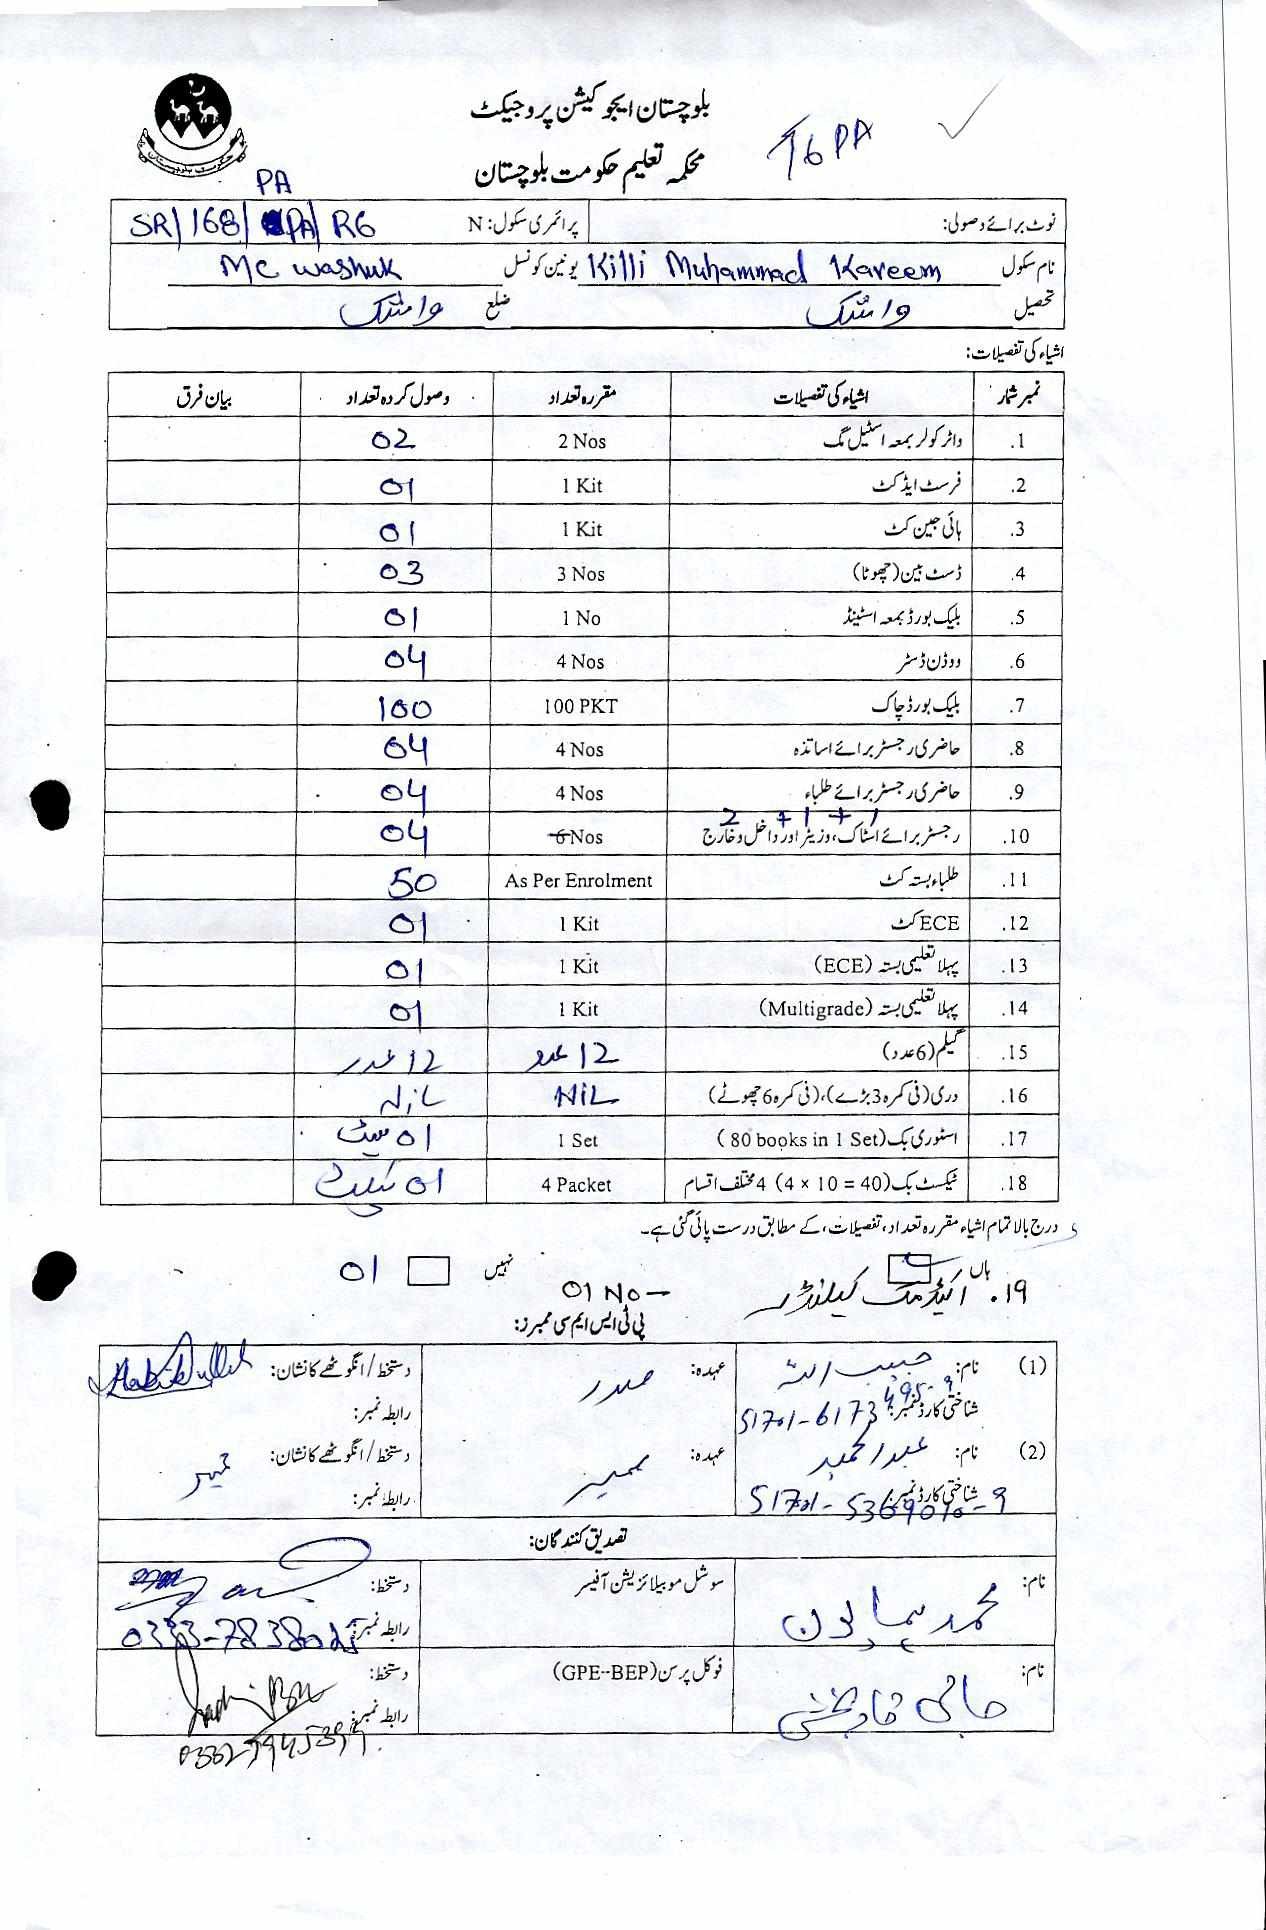 بلوچستان ایجوکیشن پروجیکٹ
محکمہ تعلیم حکومت بلوچستان
حکومت بلوچستان
16 PA
PA
نوٹ برائے وصولی: پرائمری سکول: N SR/168/ PA/ R6
نام سکول Killi Muhammad Kareem یونین کونسل MC washuk
تحصیل واشک ضلع واشک
اشیاء کی تفصیلات:
نمبر شمار اشیاء کی تفصیلات مقررہ تعداد وصول کردہ تعداد بیان فرق
1. واٹر کولر بمعہ اسٹیل مگ 2 Nos 02
2. فرسٹ ایڈ کٹ 1 Kit 01
3. ہائی جین کٹ 1 Kit 01
4. ڈسٹ بین (چھوٹا) 3 Nos 03
5. بلیک بورڈ بمعہ اسٹینڈ 1 No 01
6. ووڈن ڈسٹر 4 Nos 04
7. بلیک بورڈ چاک 100 PKT 100
8. حاضری رجسٹر برائے اساتذہ 4 Nos 04
9. حاضری رجسٹر برائے طلباء 4 Nos 04
2 + 1 + 1
10. رجسٹر برائے اسٹاک، وزیٹر اور داخل و خارج 6 Nos 04
11. طلباء بستہ کٹ As Per Enrolment 50
12. ECE کٹ 1 Kit 01
13. پہلا تعلیمی بستہ (ECE) 1 Kit 01
14. پہلا تعلیمی بستہ (Multigrade) 1 Kit 01
15. گیلم (6 عدد) 12 عدد 12 عدد
16. دری (فی کمرہ 3 بڑے)، (فی کمرہ 6 چھوٹے) NIL NIL
17. اسٹوری بک (80 books in 1 Set) 1 Set 01 سیٹ
18. ٹیکسٹ بک (4 × 10 = 40) 4 مختلف اقسام 4 Packet 01
درج بالا تمام اشیاء مقررہ تعداد، تفصیلات، کے مطابق درست پائی گئی ہے۔
ہاں نہیں 01
19. کیلنڈر 01 No
پی ٹی ایس ایم سی ممبرز:
(1) نام: حبیب اللہ عہدہ: صدر دستخط/انگوٹھے کا نشان: Habibullah
شناختی کارڈ نمبر: رابطہ نمبر:
(2) نام: عبدالحمید عہدہ: ممبر دستخط/انگوٹھے کا نشان:
شناختی کارڈ نمبر: 51701-5369010-9 رابطہ نمبر:
تصدیق کنندگان:
نام: محمد ہمایون سوشل موبلائزیشن آفیسر دستخط:
رابطہ نمبر:
نام: فوکل پرسن (GPE-BEP) دستخط:
رابطہ نمبر: